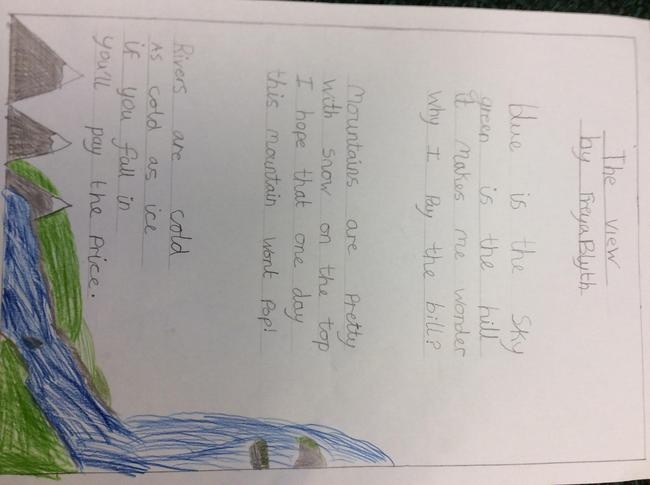 The view
by Freya Blyth
blue is the Sky
green is the hill
it makes me wonder
why I Pay the bill?
Mountains are Pretty
with snow on the top
I hope that one day
this mountain wont Pop!
Rivers are cold
As cold as ice
if you fall in
you'll pay the Price.